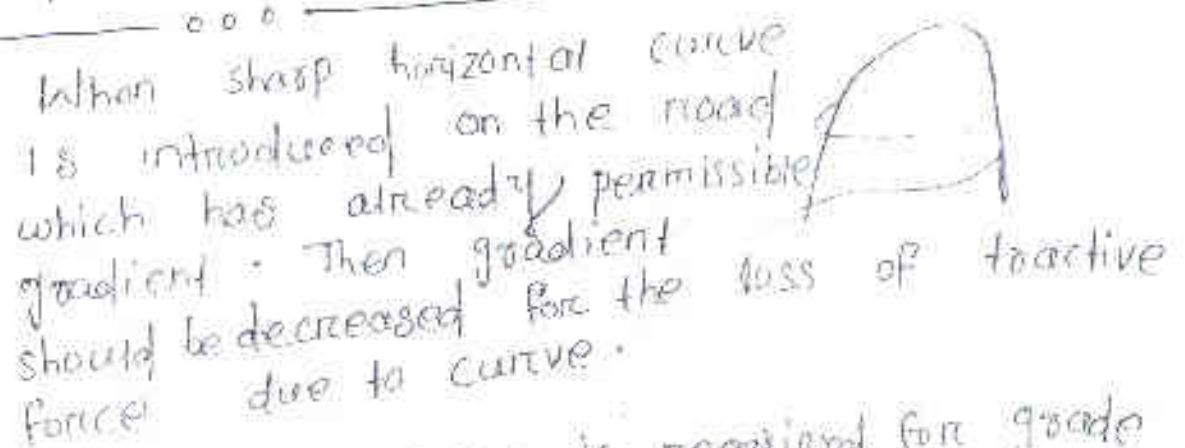 When sharp horizontal curve
is introduced on the road
which has already permissible
gradient. Then gradient
should be decreased for the loss of tractive
force due to curve.
for grade